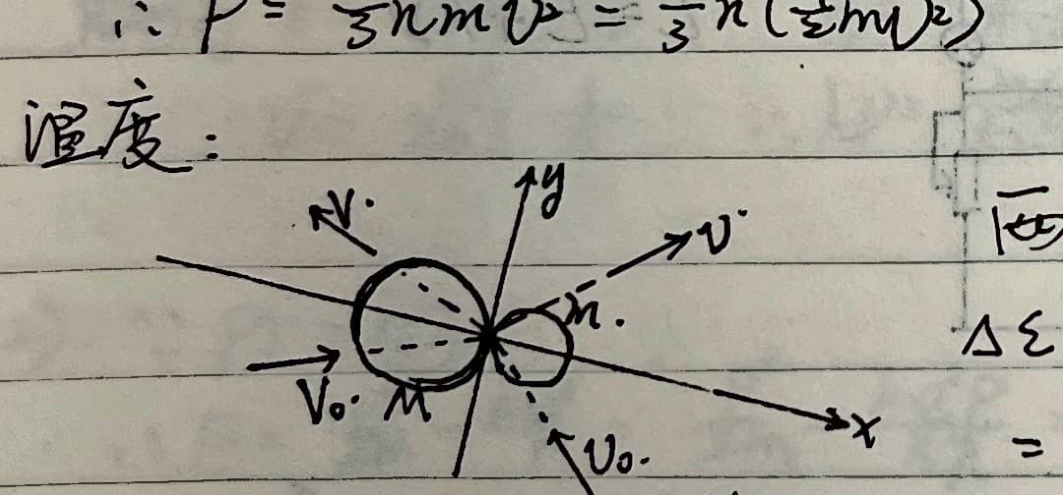 ∴ P = 1/3 n m v² = 2/3 n (1/2 m v²)
温度：
y
V.
v.
m.
V₀.
M
Δε
x
v₀.
=